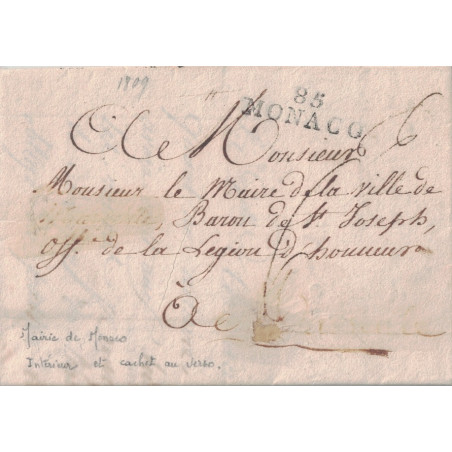 1809
85
MONACO
A Monsieur
Monsieur le Maire de la Ville de
Baron de St. Joseph,
Off. de la Légion d'honneur
À
Mairie de Monaco
Intérieur et cachet au verso.